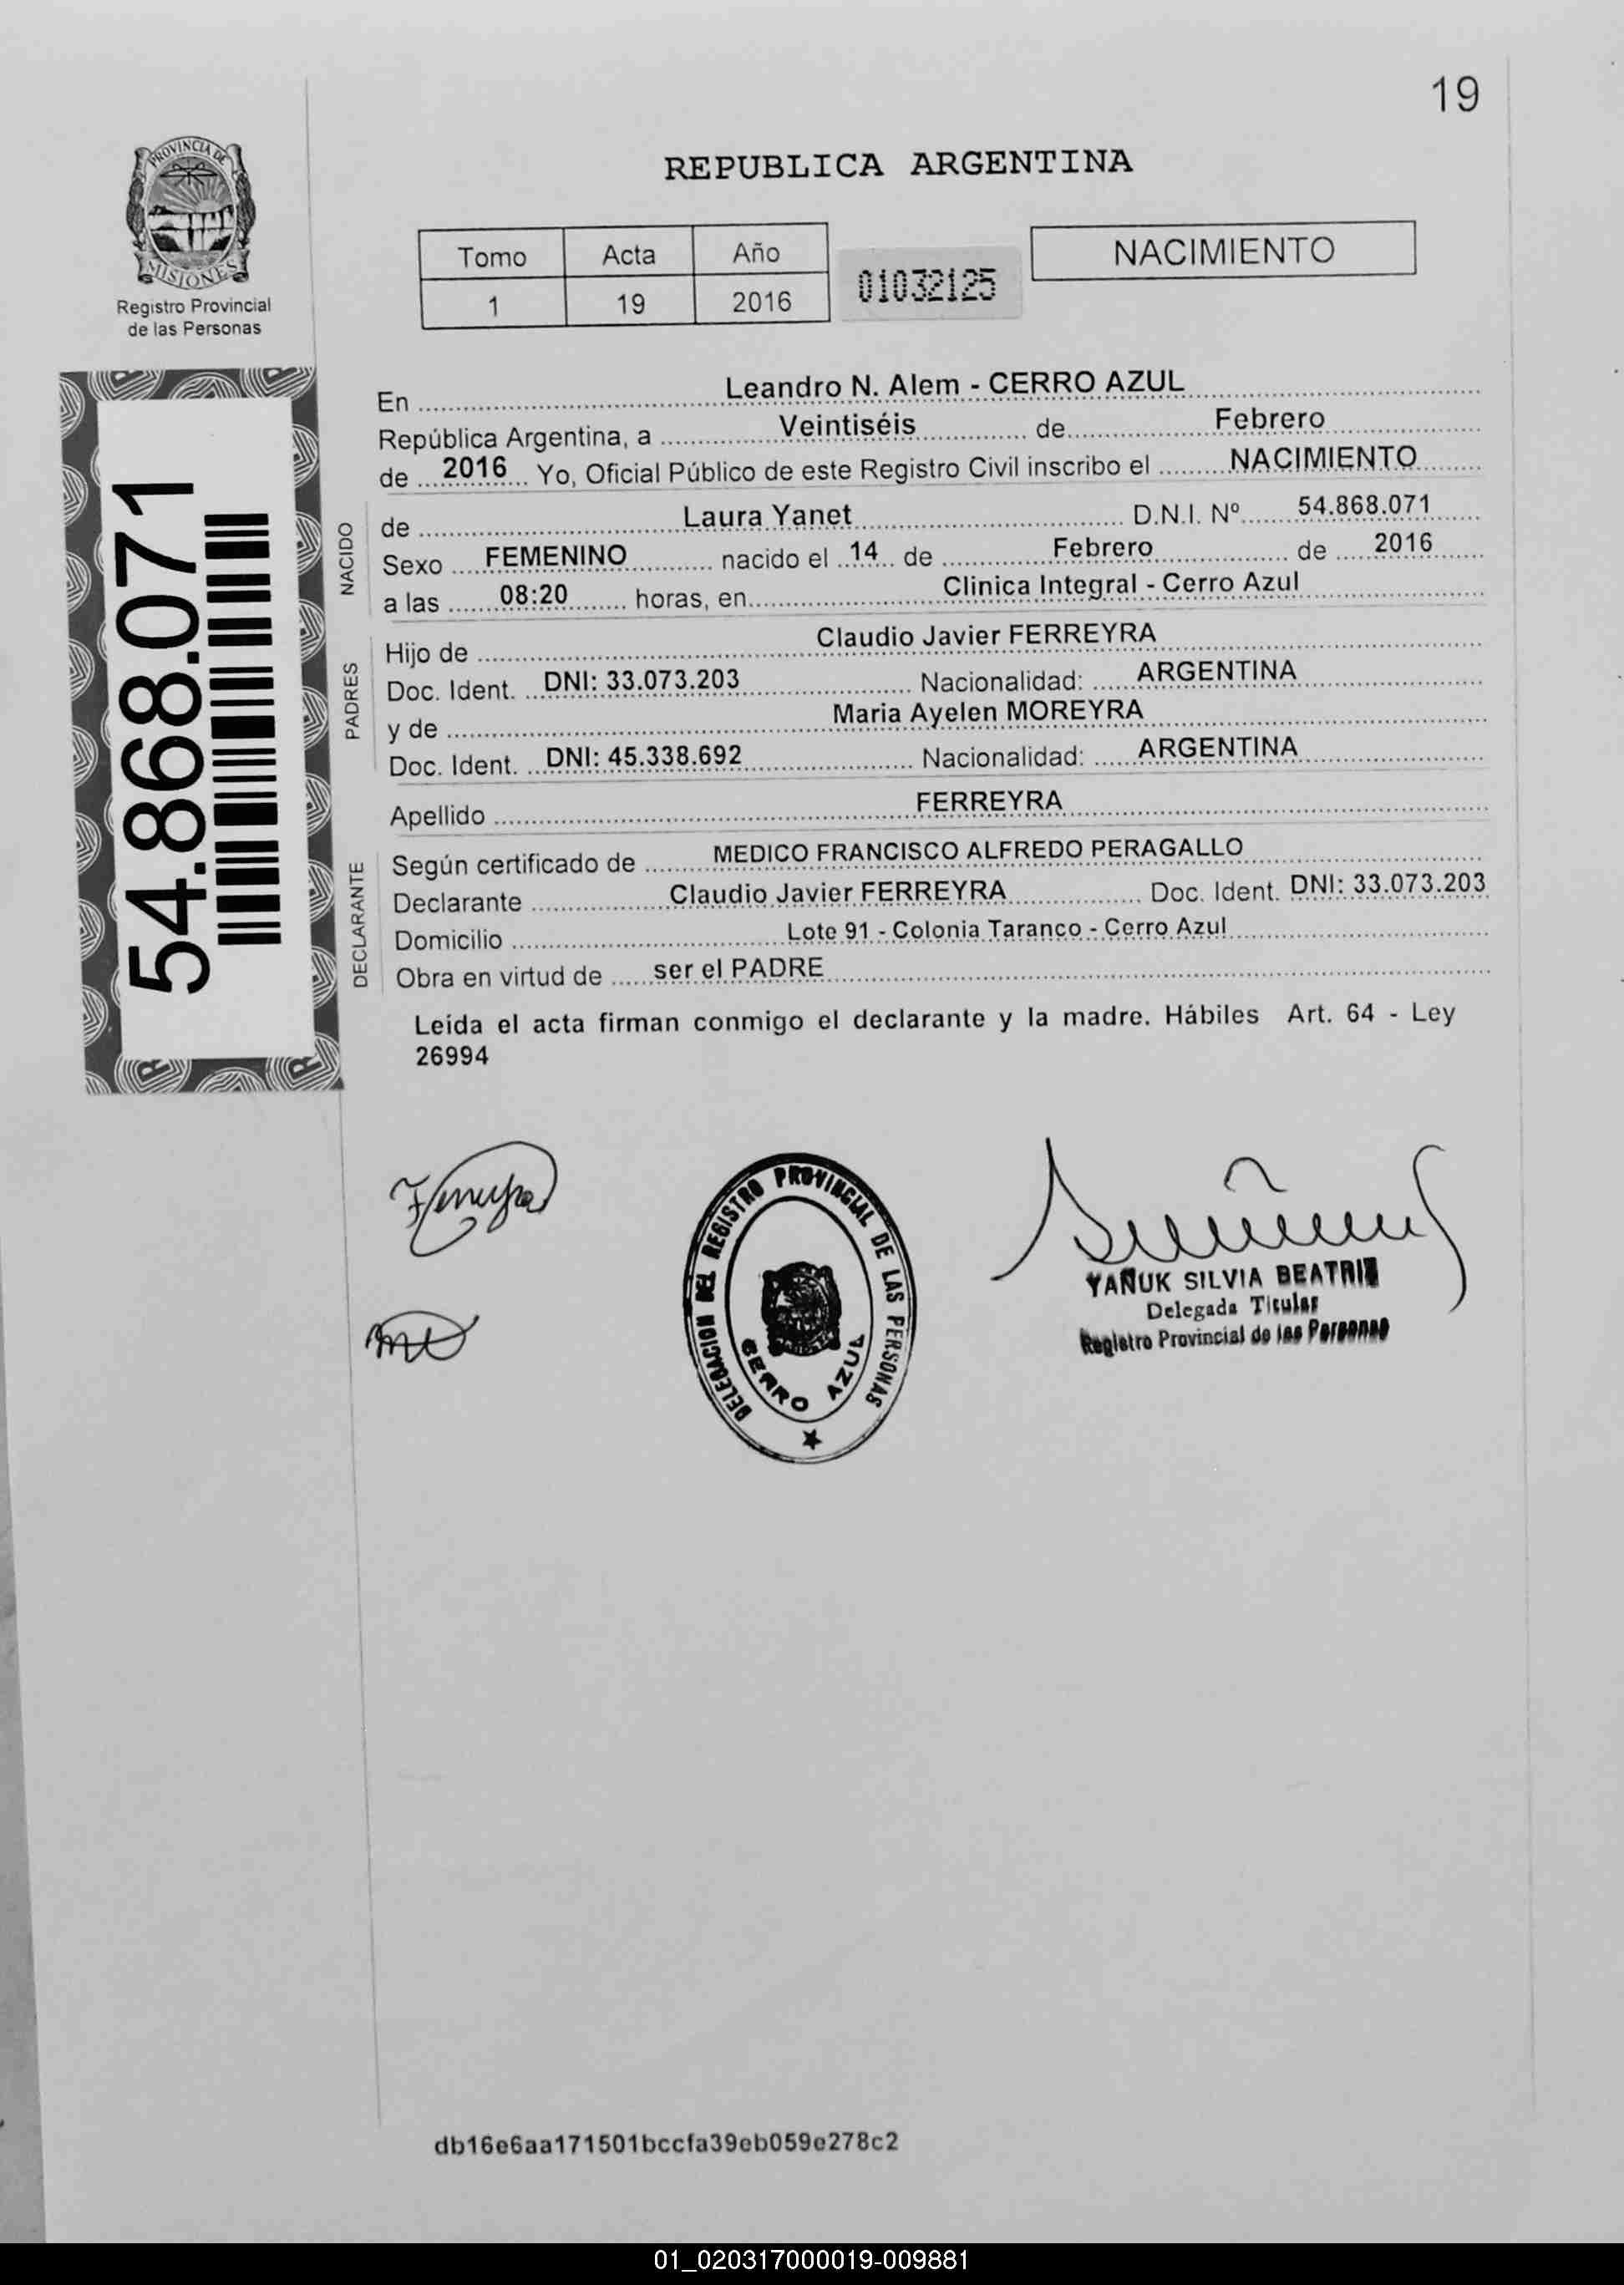 19
PROVINCIA DE
MISIONES
Registro Provincial
de las Personas
REPUBLICA ARGENTINA
Tomo Acta Año
1 19 2016
01032125
NACIMIENTO
54.868.071
En Leandro N. Alem - CERRO AZUL
República Argentina, a Veintiséis de Febrero
de 2016 Yo, Oficial Público de este Registro Civil inscribo el NACIMIENTO
NACIDO
de Laura Yanet D.N.I. Nº 54.868.071
Sexo FEMENINO nacido el 14 de Febrero de 2016
a las 08:20 horas, en Clinica Integral - Cerro Azul
PADRES
Hijo de Claudio Javier FERREYRA
Doc. Ident. DNI: 33.073.203 Nacionalidad: ARGENTINA
y de Maria Ayelen MOREYRA
Doc. Ident. DNI: 45.338.692 Nacionalidad: ARGENTINA
Apellido FERREYRA
DECLARANTE
Según certificado de MEDICO FRANCISCO ALFREDO PERAGALLO
Declarante Claudio Javier FERREYRA Doc. Ident. DNI: 33.073.203
Domicilio Lote 91 - Colonia Taranco - Cerro Azul
Obra en virtud de ser el PADRE
Leida el acta firman conmigo el declarante y la madre. Hábiles Art. 64 - Ley
26994
DELEGACION DEL REGISTRO PROVINCIAL DE LAS PERSONAS
CERRO AZUL
YAÑUK SILVIA BEATRIZ
Delegada Titular
Registro Provincial de las Personas
db16e6aa171501bccfa39eb059e278c2
01_020317000019-009881